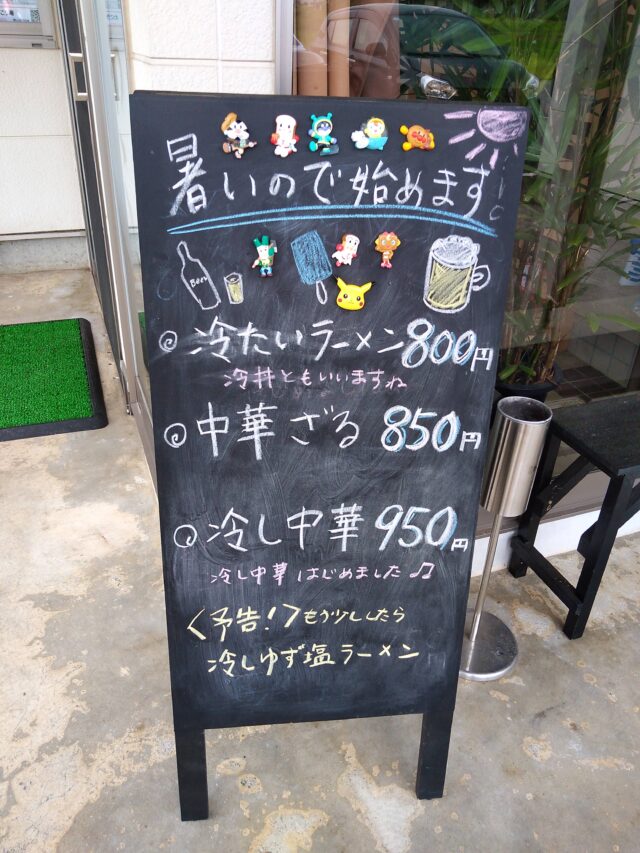 暑いので始めます
Beer
◎冷たいラーメン800円
冷丼ともいいますね
◎中華ざる 850円
◎冷し中華 950円
冷し中華はじめました♫
〈予告!〉もう少ししたら
冷しゆず塩ラーメン